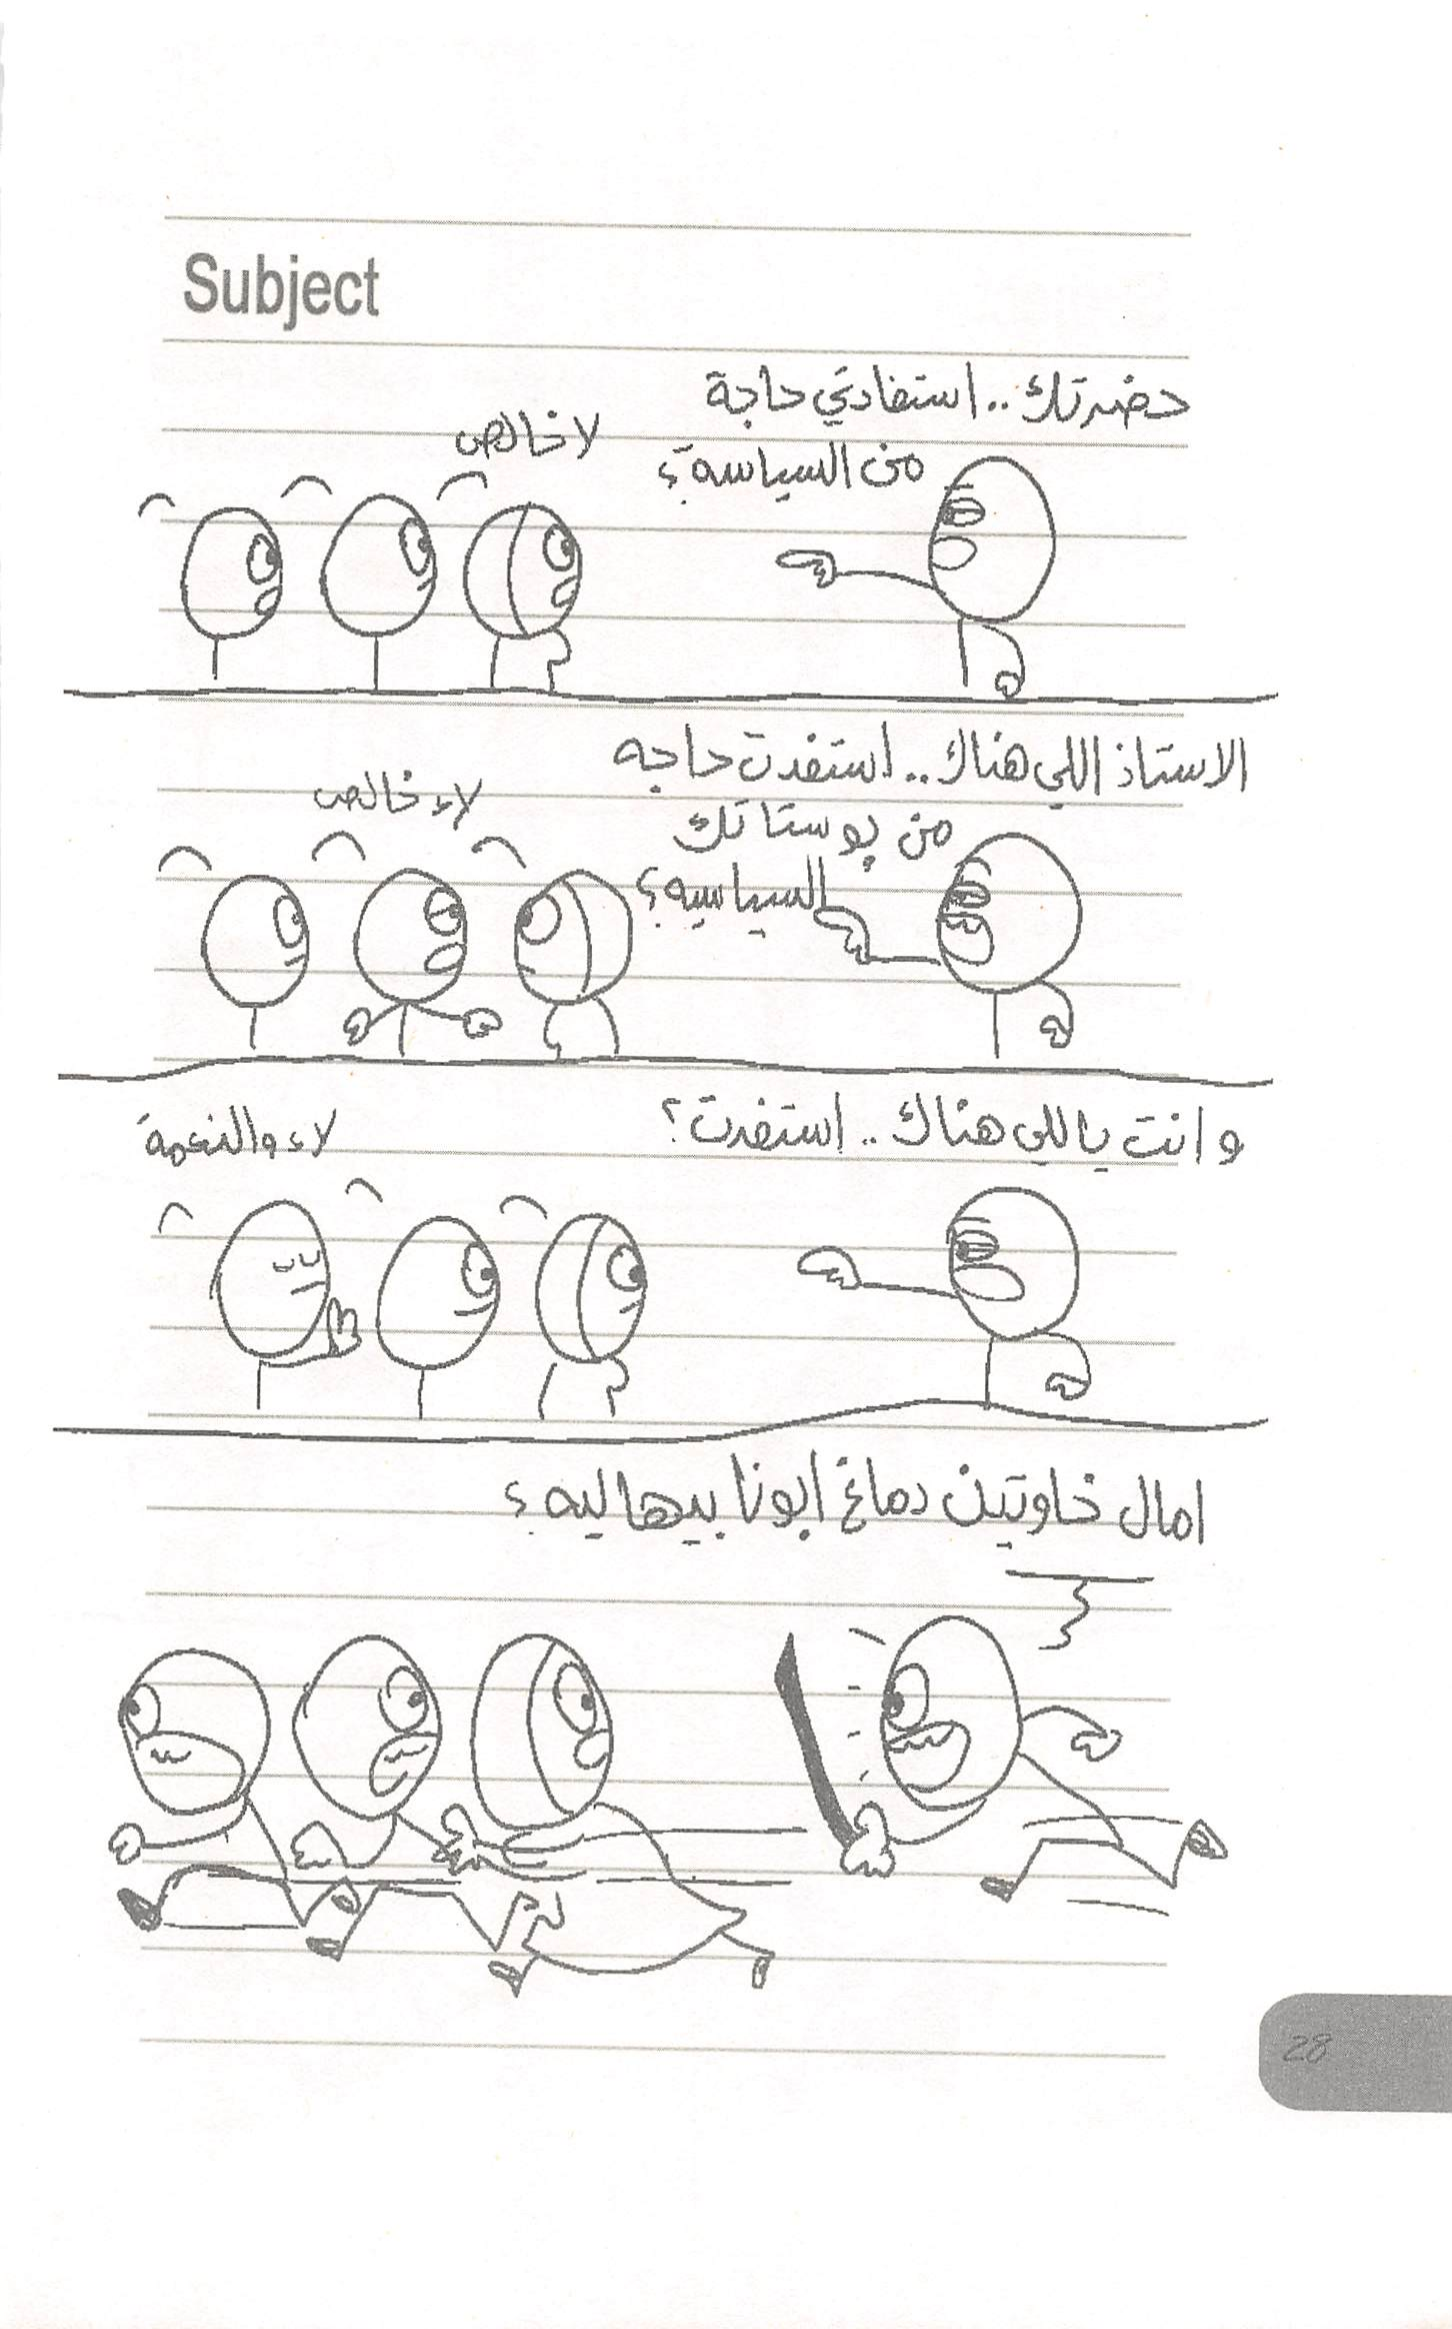 Subject
حضرتك.. استفادتي حاجة
من السياسة؟
لا خالص
الاستاذ اللي هناك.. استفدت حاجه
من بوستاتك
السياسيه؟
لاء خالص
وانت ياللي هناك.. استفدت؟
لاء والنعمة
امال خاوتين دماغ ابونا بيها ليه؟
28